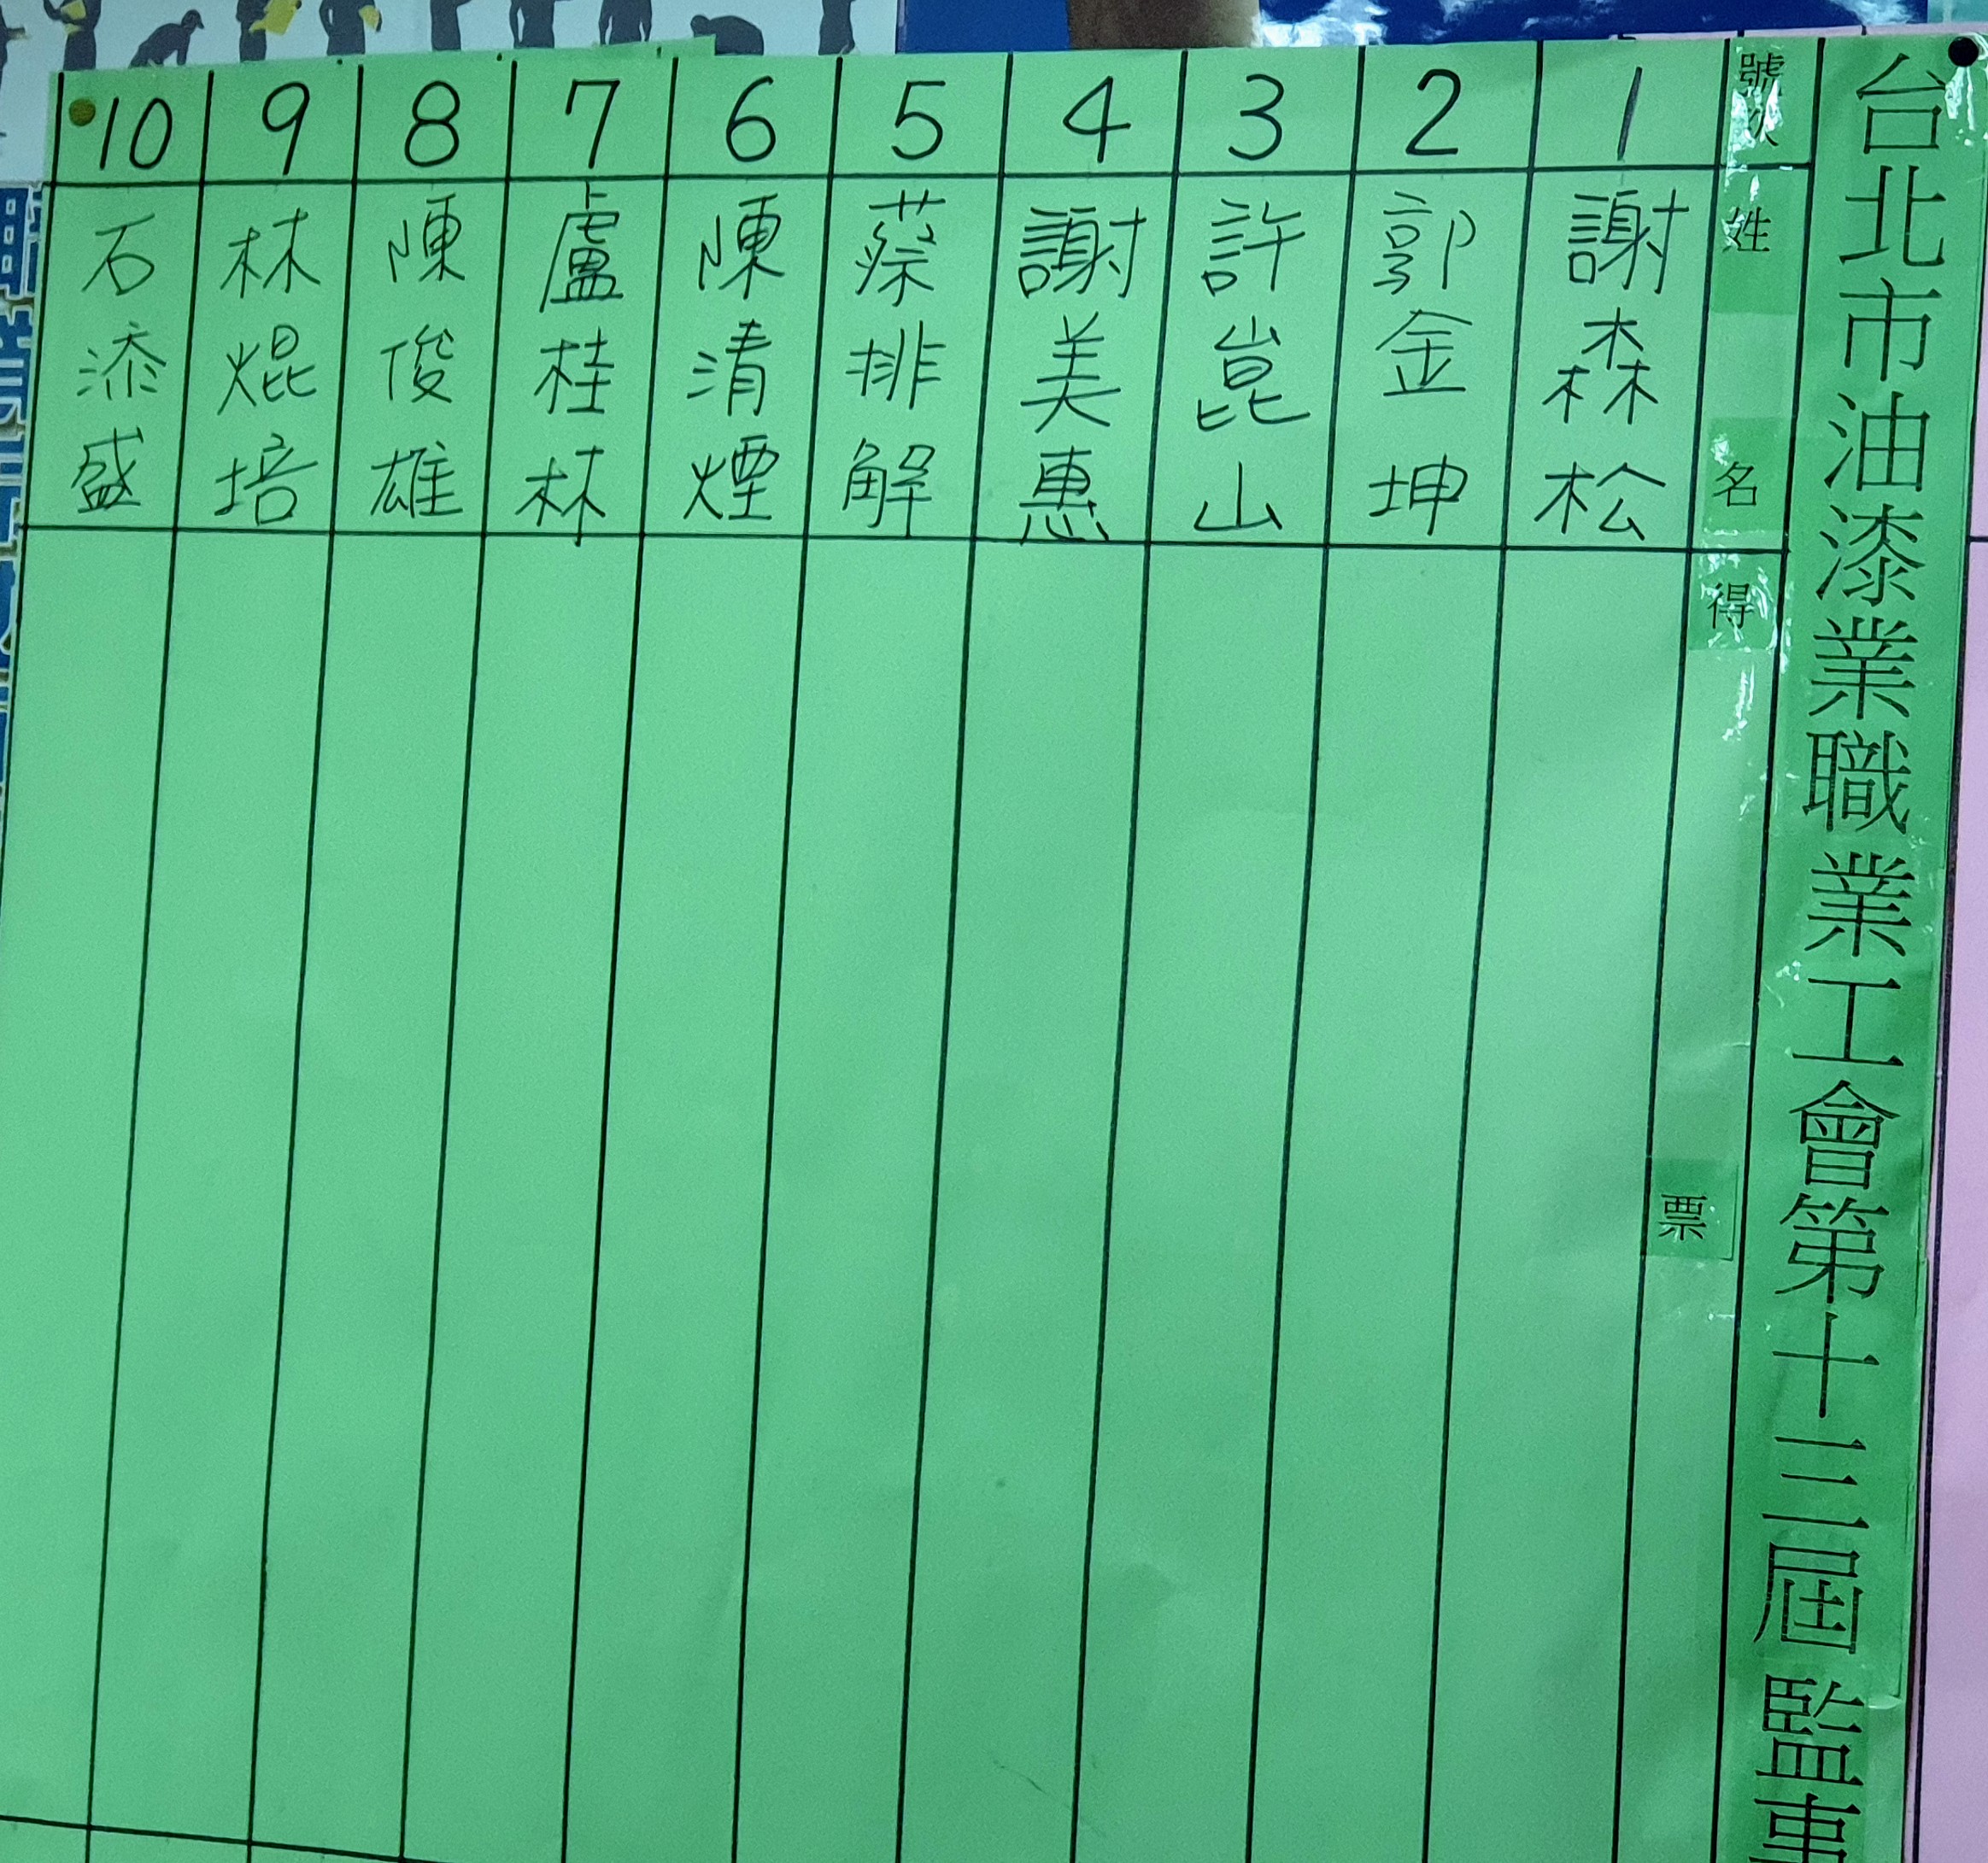 台北市油漆業職業工會第十三屆監事
號次
姓名
得票
1
謝森松
2
郭金坤
3
許崑山
4
謝美惠
5
蔡排解
6
陳清煙
7
盧桂林
8
陳俊雄
9
林焜培
10
石添盛